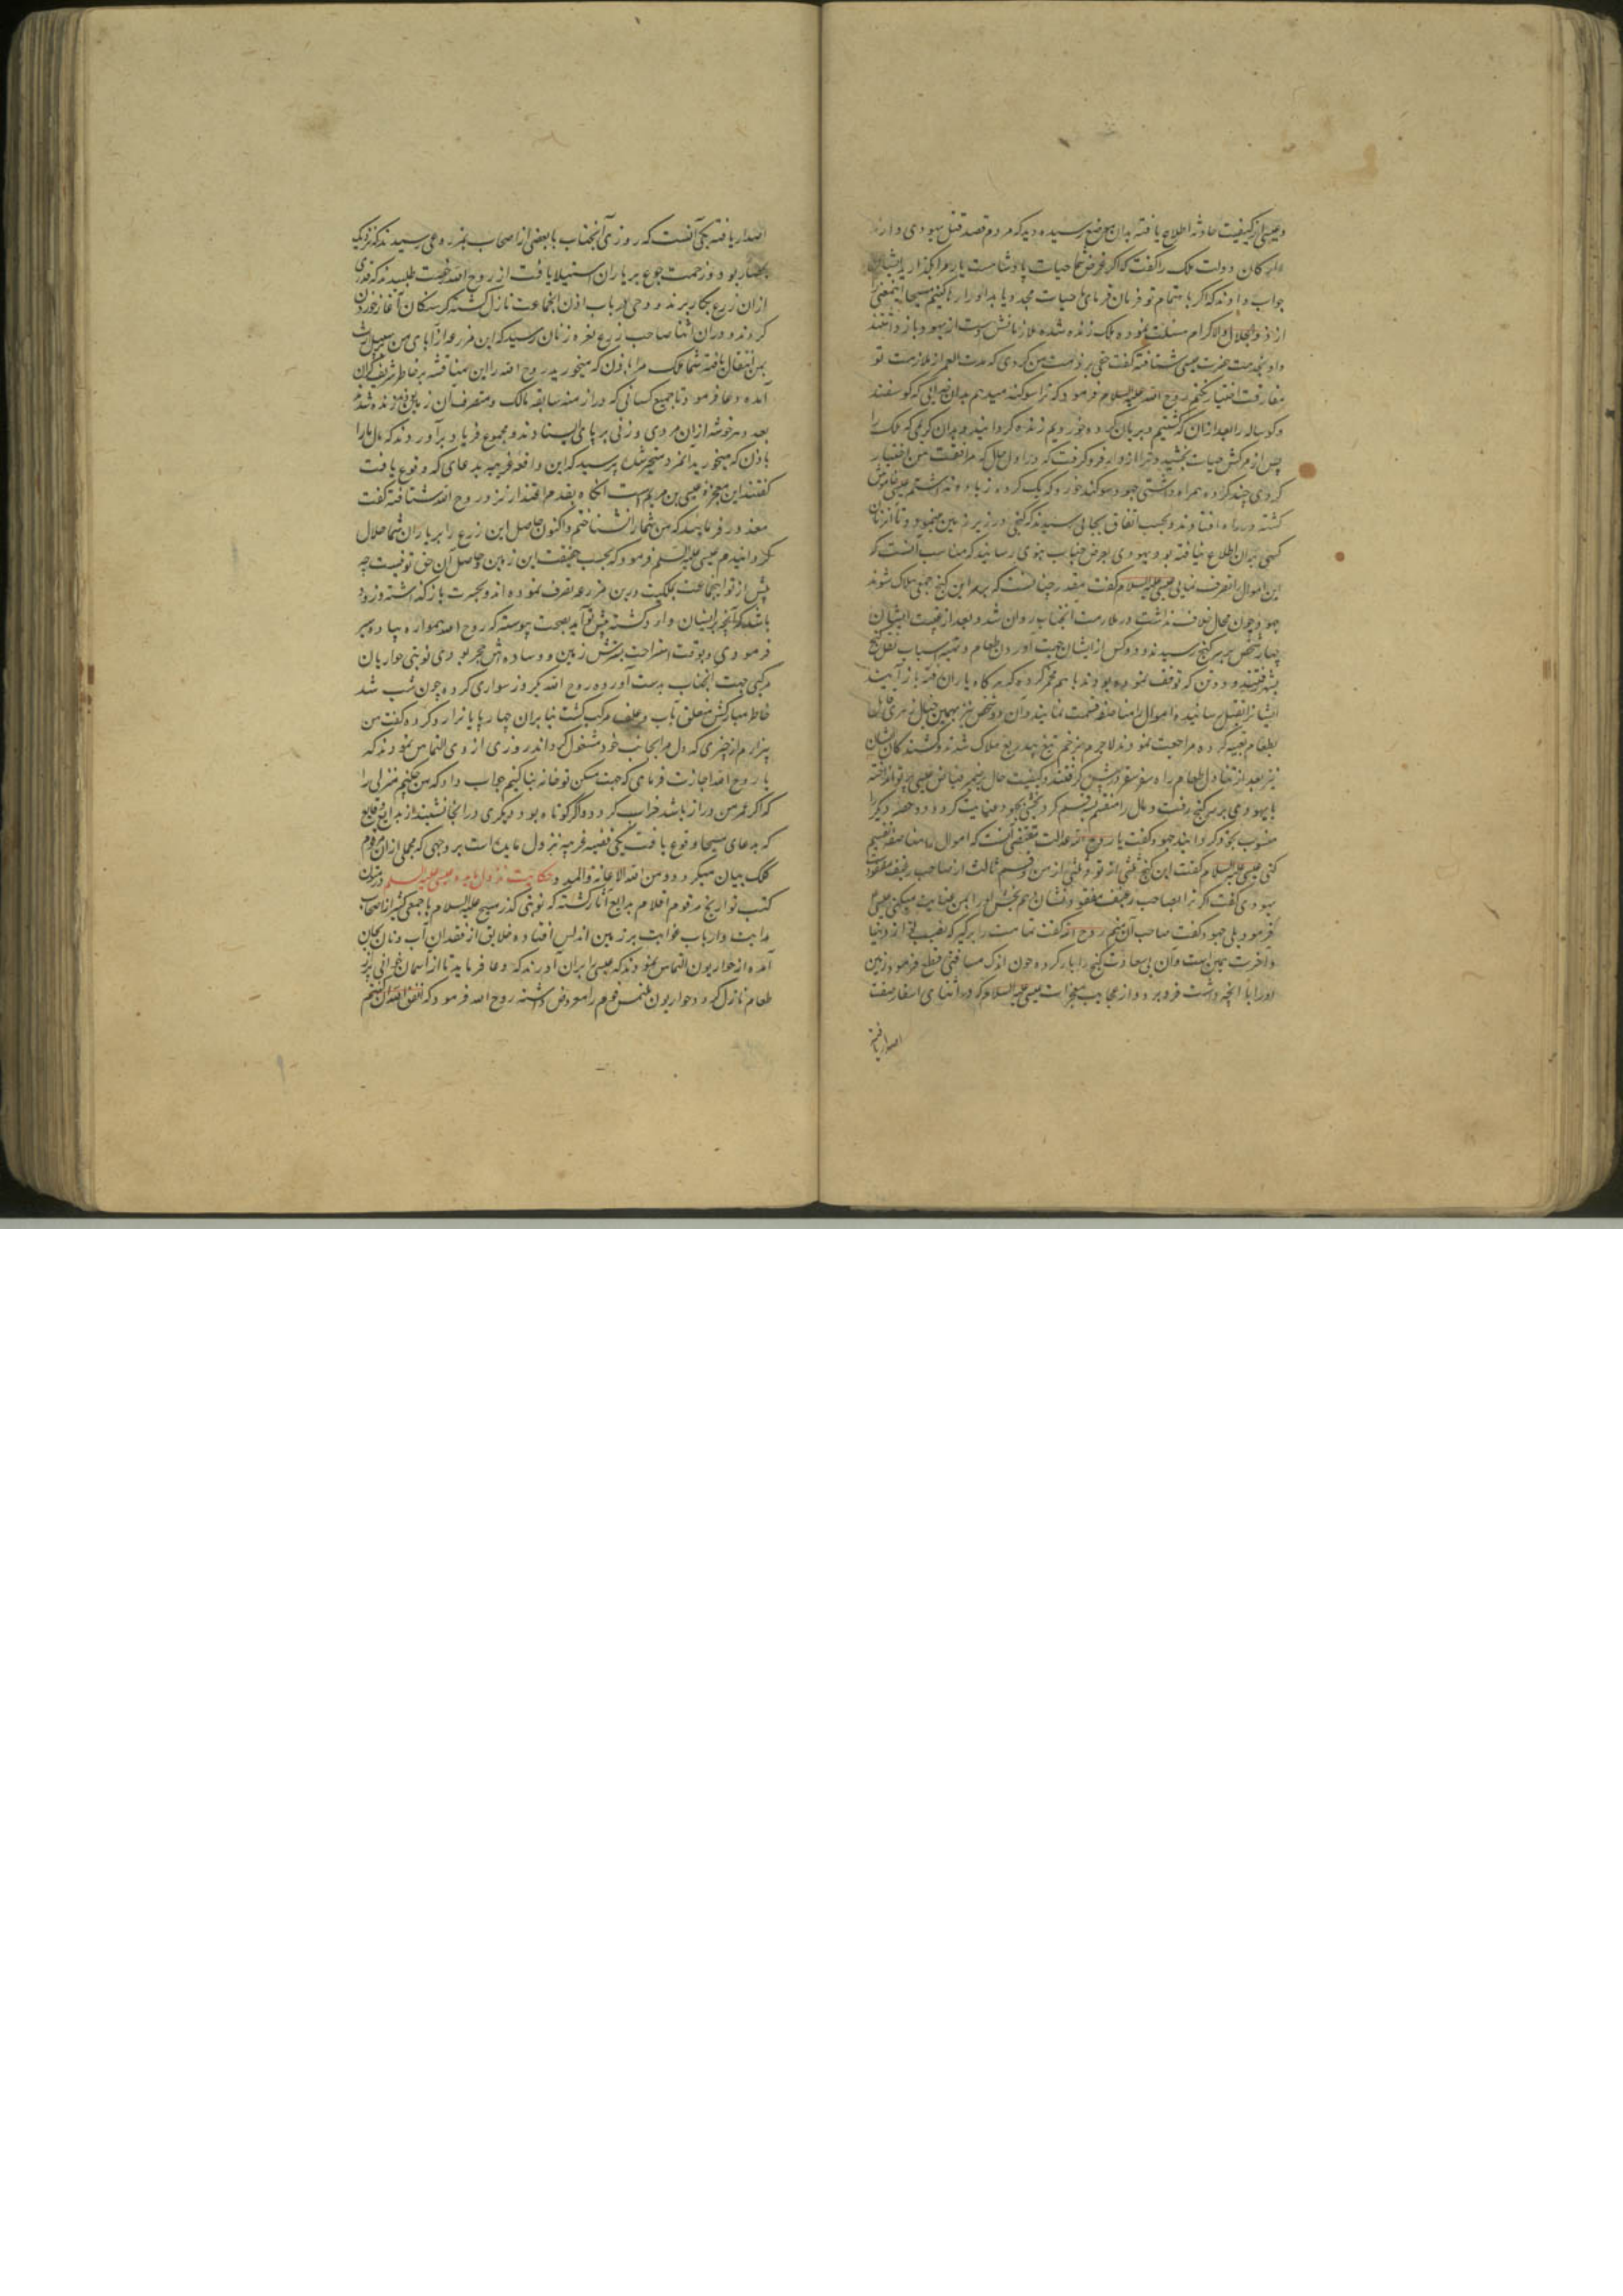 و عیسی از کیفیت حادثه اطلاع یافته بدان موضع رسیده دید که مردم قصد قتل یهودی دارند
با ارکان دولت ملک را گفت که اگر غرض شما حیات پادشاهست یار مرا بگذارید ایشان
جواب دادند که اگر باهتمام تو فرمان فرمای ما حیات مجدد یابد او را رها کنیم مسیحا اینمعنی را
از ذو الجلال والاکرام مسئلت نموده ملک زنده شده ملازمانش دست از یهود باز داشتند
و او بخدمت حضرت عیسی شتافته گفت حقی بر ذمت من کردی که مدت العمر از ملازمت تو
مفارقت اختیار نکنم روح الله علیه السلام فرمود که ترا سوکند میدهم بدان خدایی که کوسفند
و کوساله را بعد از آن که کشتیم و بریان کرده خوردیم زنده کردانید و بدان کریمی که ملک را
پس از مرکش حیات بخشید و ترا از دار فرو کرفت که در اول حال که مرافقت من اختیار
کردی چند کرده همراه داشتی جهود سوکند خورد که یک کرده زیاده نداشتم عیسی خاموش
کشته در راه افتادند و بحسب اتفاق بجایی رسیدند که کنجی در زیر زمین و تا آنزمان
کسی بران اطلاع نیافته بود یهودی بعرض جناب نبوی رسانید که مناسب آنست که
این اموال را تصرف نمایی عیسی علیه السلام گفت مقدر چنانست که بر سر این کنج جمعی هلاک شوند
یهود چون مجال خلاف نداشت در ملازمت آنجناب روان شد و بعد از غیبت ایشان
چهار شخص بر سر کنج رسیدند و دو کس از ایشان جهت آوردن طعام و تهیه اسباب نقل کنج
بشهر رفتند و دو تن که توقف نموده بودند با هم مقرر کرده که هر کاه یاران رفته باز آیند
ایشانرا بقتل رسانیده اموال را مناصفه قسمت نمایند و آن دو شخص نیز بهمین خیال زهری قاتل
بطعام تعبیه کرده مراجعت نمودند لاجرم بزخم تیغ بیدریغ هلاک شدند و کشندگان ایشان
نیز بعد از تناول طعام راه سفر سقر در پیش کرفتند و کیفیت حال بر ضمیر فیاض عیسی پرتو انداخته
با یهودی بر سر کنج رفت و مال را منقسم بسه قسم کرد بخشی بجهود عنایت کرد و دو حصه دیکر را
منسوب بخود کردانید جهود گفت یا روح الله عدالت مقتضی آنست که اموال را مناصفه تقسیم
کنی عیسی علیه السلام گفت این کنج ثلثی از تو و ثلثی از من و قسم ثالث از صاحب رغیف مفقود است
یهودی گفت اکر ترا بصاحب رغیف مفقود نشان دهم بخش او را بمن عنایت میکنی عیسی
فرمود بلی جهود گفت صاحب آن منم روح الله گفت تمامت را برگیر که نصیب تو از دنیا
و آخرت همین است و آن بی سعادت کنج را بار کرده چون اندک مسافتی قطع فرمود زمین
او را با آنچه داشت فرو برد و از عجایب معجزات عیسی علیه السلام که در اثنای اسفار صفت
اصدار یافته
اصدار یافته یکی آنست که روزی آنجناب با بعضی از اصحاب بمزروعی رسیدند که نزدیک
بحصاد بود و زحمت جوع بر یاران استیلا یافت از روح الله رخصت طلبیدند که قدری
ازان زرع بکار برند و وحی در باب اذن انجماعت نازل کشته گرسنکان آغاز خوردن
کردند و دران اثنا صاحب زرع نعره زنان رسید که این مزرعه از آبای من بمیراث
بمن انتقال یافته شما ملک مرا باذن که میخورید روح الله را این مناقشه بر خاطر شریف گران
آمده دعا فرمود تا جمیع کسانی که در ازمنه سابقه مالک و متصرف آن زمین بودند زنده شدند
بعدد هر خوشه ازان مردی و زنی بر پای ایستادند و مجموع فریاد برآوردند که مال ما را
باذن که میخورید آنمرد متحیر شد پرسید که این واقعه غریبه بدعای که وقوع یافت
گفتند این معجزه عیسی بن مریم است آنکاه بقدم اعتذار نزد روح الله شتافته گفت
معذور فرمایید که من شما را نشناختم و اکنون حاصل این زرع را بر یاران شما حلال
کردانیدم عیسی علیه السلام فرمود که بحسب حقیقت این زمین و حاصل آن حق تو نیست چه
پیش از تو اینجماعت بملکیت درین مزرعه تصرف نموده اند و بحسرت باز گذاشته و زود
باشد که آنچه بر ایشان وارد کشته پیش تو آید بصحت پیوسته که روح الله همواره پیاده سیر
فرمودی و بوقت استراحت بسترش زمین و وساده اش حجر بودی نوبتی حواریان
مرکبی جهت آنجناب بدست آورده روح الله یکروز سواری کرده چون شب شد
خاطر مبارکش متعلق بآب و علف مرکب گشت بنابران چهارپا را رد کرده گفت من
بیزارم از چیزی که دل مرا بجانب خود مشغول گرداند روزی از وی التماس نمودند که
یا روح الله اجازت فرمای که جهت مسکن تو خانه بنا کنیم جواب داد که من چکنم منزلی را
که اگر عمر من دراز باشد خراب گردد و اگر کوتاه بود دیگری در آنجا نشیند از بدایع وقایع
که بدعای مسیحا وقوع یافت یکی قضیه غریبه نزول مایده است بر وجهی که مجملی ازان مرقوم
کلک بیان میگردد و من الله الاعانة والمدد حکایت نزول مایده و عیسی علیه السلم در متون
کتب تواریخ مرقوم اقلام بدایع آثار کشته که نوبتی گذر مسیح علیه السلام با جمعی کثیر از اصحاب
هدایت و ارباب غوایت بر زمین اندلس افتاده خلایق از فقدان آب و نان بجان
آمده از حواریون التماس نمودند که عیسی را بران آورند که دعا فرماید تا از آسمان خوانی پر از
طعام نازل گردد حواریون ملتمس قوم را معروض داشته روح الله فرمود که اتقوا الله ان کنتم